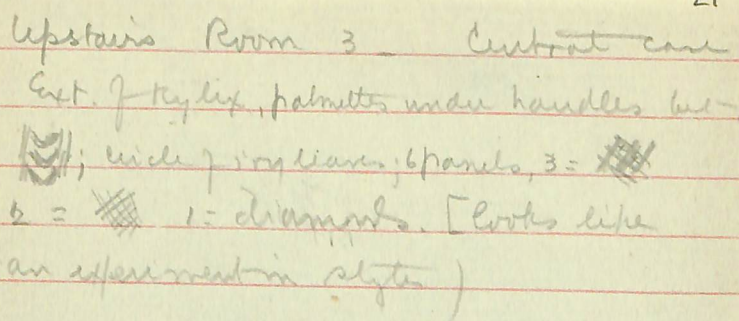 Upstairs Room 3 - Central case
Ext. of kylix, palmettes under handles bet-
; circle of ivy leaves; 6 panels, 3 =
2 = 1 = diamonds. [looks like
an experiment in styles)